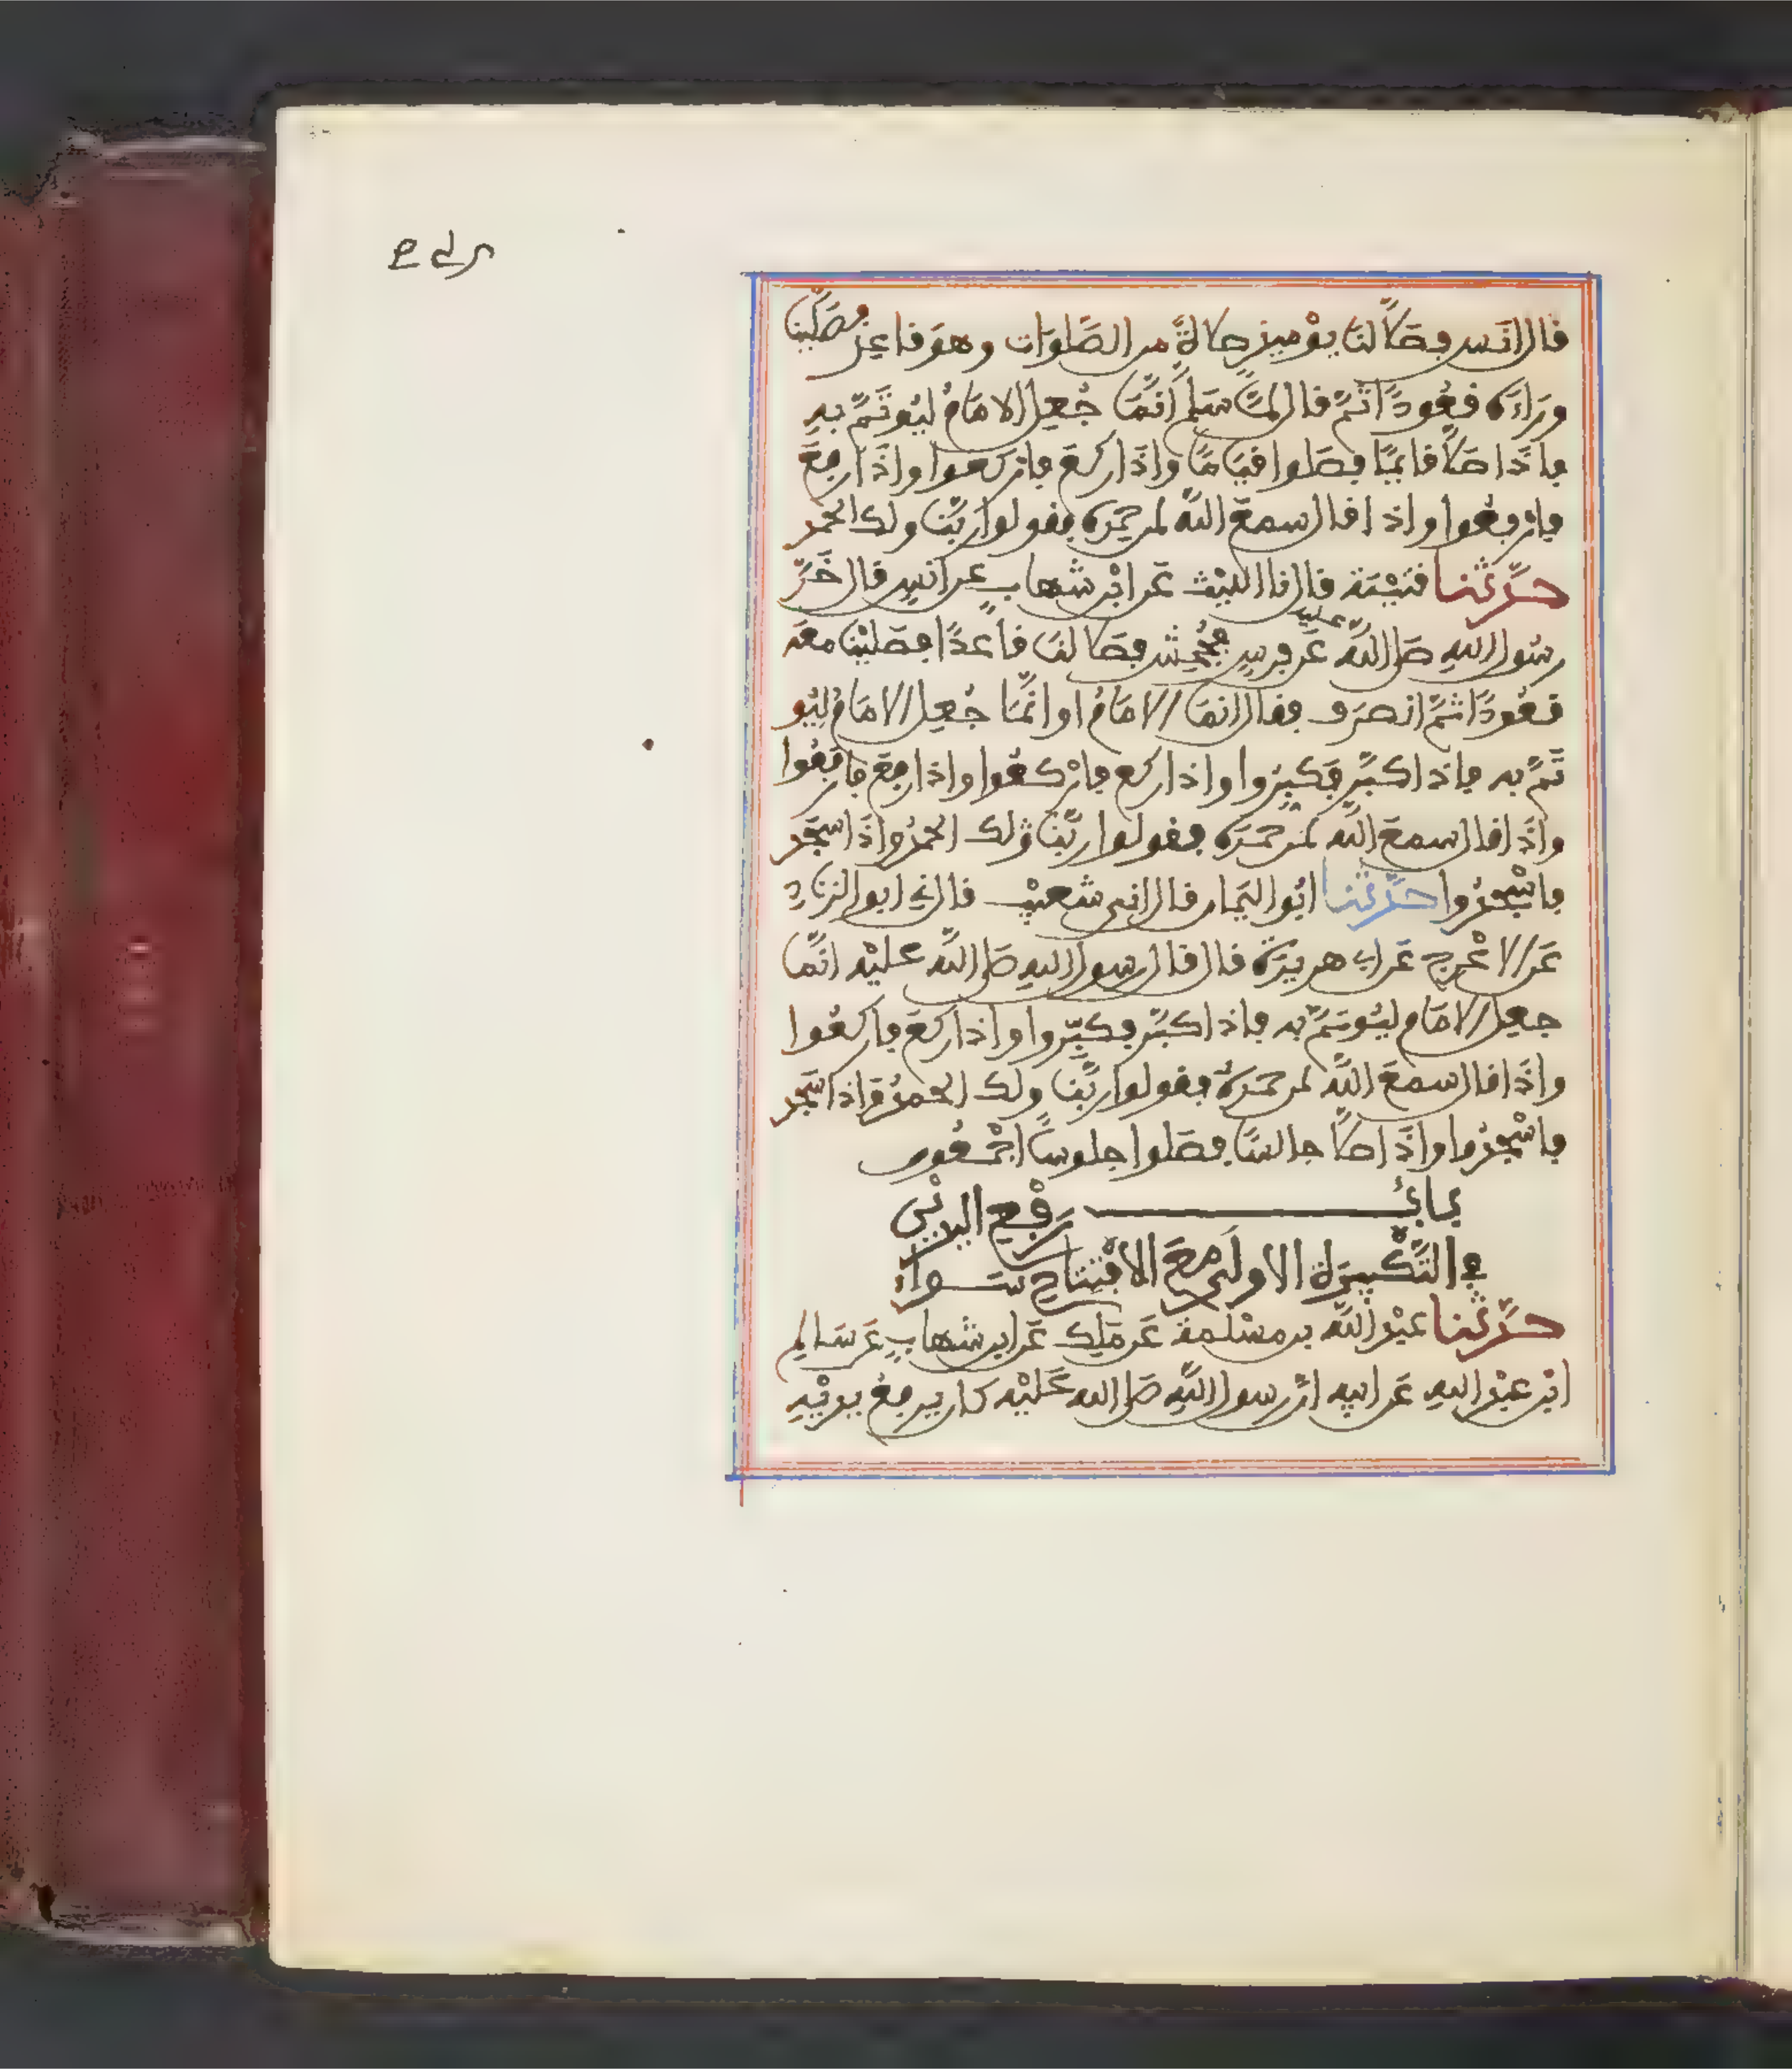 قال انس فصلّى لنا يومئذ صلاةً من الصَّلوات وهو قاعد فصلّينا
وراءه قعودًا ثمّ قال لمّا سلم انّما جُعل الامامُ ليُوتَمّ به
فاذا صلّى قائمًا فصلوا قيامًا واذا ركع فاركعوا واذا رفع
فارفعوا واذا قال سمع الله لمن حمده فقولوا ربّنا ولك الحمد
حدّثنا قتيبة قال نا الليث عن ابن شهاب عن انس قال خَرّ
رسول الله صلى الله عليه عن فرس فجُحِش فصلى لنا قاعدًا فصلّيْنا معه
قعودًا ثمّ انصرف فقال انما الامامُ او انّما جُعل الامامُ ليُو
تَمّ به فاذا كبّر فكبّروا واذا ركع فارْكعُوا واذا رفع فارفعُوا
واذا قال سمع الله لمن حمده فقولوا ربّنا ولك الحمدُ واذا سجد
فاسْجدُوا حدّثنا ابُو اليمان قال انى شعيْب قال نى ابو الزناد
عن الاعْرج عن ابى هريرة قال قال رسول الله صلى الله عليْه انّما
جعل الامام ليُوتمّ به فاذا كبّر فكبّروا واذا ركع فاركعُوا
واذا قال سمع الله لمن حمده فقولوا ربّنا ولك الحمدُ واذا سجد
فاسْجدُوا واذا صلّى جالسًا فصلوا جلوسًا اجْمعُون
بابُ رفْع اليديْن
فى التّكْبيرة الاولى مع الافْتتاح سواءً
حدّثنا عبْد الله بن مسْلمة عن ملك عن ابن شهاب عن سالم
ابْن عبْد الله عن ابيه انّ رسول الله صلى الله عليْه كان يرفعُ يديْه